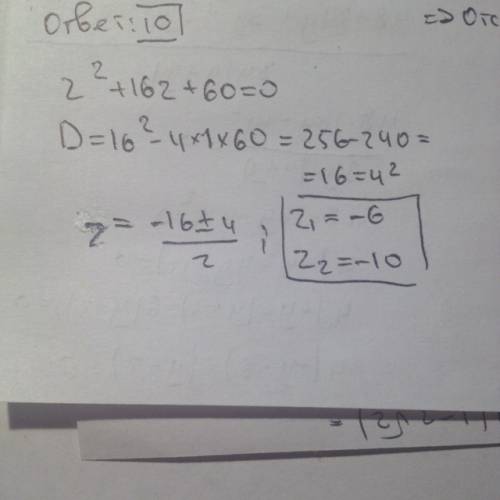 Ответ: 10
=> Отс
z² + 16z + 60 = 0
D = 16² - 4×1×60 = 256 - 240 =
= 16 = 4²
z = (-16 ± 4) / 2 ; z₁ = -6
z₂ = -10